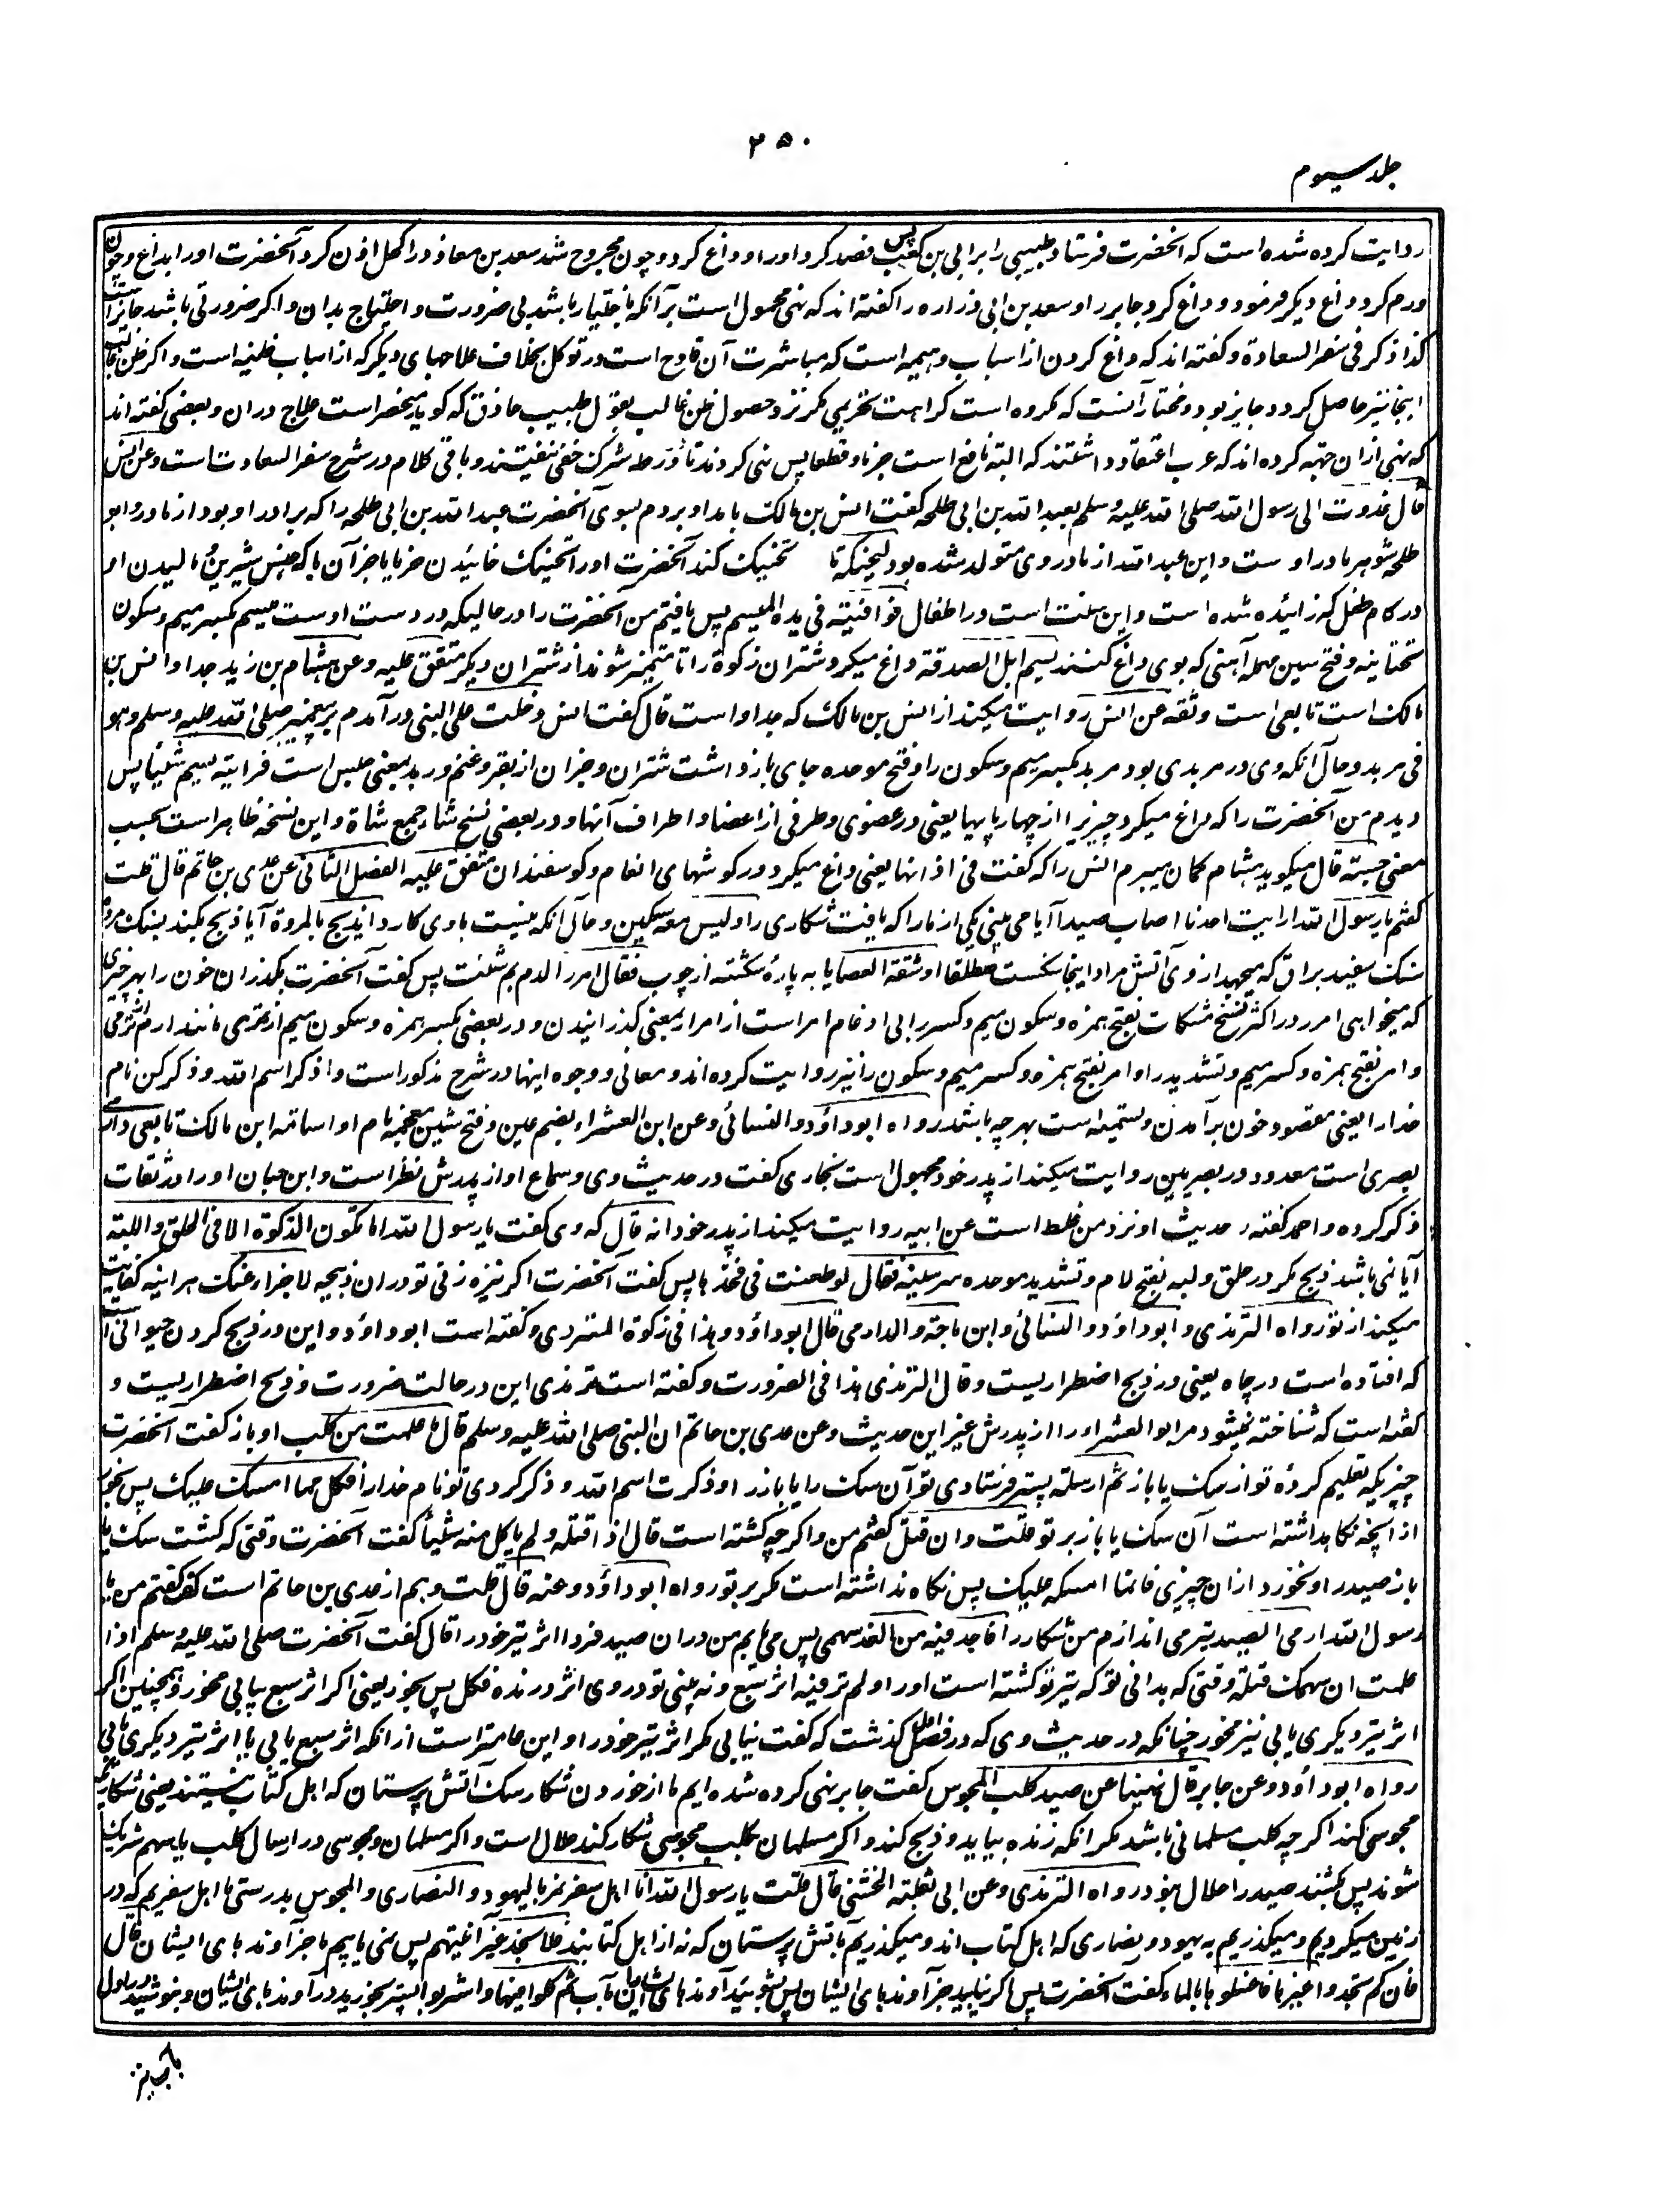 ۲۵۰
جلد سیوم
روایت کرده شده است که آنحضرت فرستاد طبیبی را بر ابی بن کعب پس فصد کرد او را و داغ کرد و چون مجروح شد سعد بن معاذ در اکحل اذن کرد آنحضرت او را بداغ و چون
ورم کرد داغ دیگر فرمود و داغ کرد جابر را و سعد بن ابی زراره را گفته اند که نهی محمول است بر آنکه باختیار باشد بی ضرورت و احتیاج بدان و اگر ضرورتی باشد جائز است
کذا ذکر فی سفر السعادة و گفته اند که داغ کردن از اسباب وهمیه است که مباشرت آن قادح است در توکل بخلاف علاجهای دیگر که از اسباب ظنیه است و اگر ظن غالب
اینجا نیز حاصل گردد جایز بود و مختار آنست که مکروه است کراهت تحریمی مگر نزد حصول ظن غالب بقول طبیب حاذق که گوید منحصر است علاج در آن و بعضی گفته اند
که نهی از ان جهته کرده اند که عرب اعتقاد داشتند که البته نافع است جزما و قطعا پس نهی کردند تا در ورطه شرک خفی نیفتند و باقی کلام در شرح سفر السعادت است و عن انس
قال غدوت الی رسول الله صلی الله علیه وسلم بعبد الله بن ابی طلحه گفت انس بن مالک بامداد بردم بسوی آنحضرت عبد الله بن ابی طلحه را که برادر او بود از مادر و ابو
طلحه شوهر مادر اوست و این عبد الله از مادر وی متولد شده بود لیحنکه تا تحنیک کند آنحضرت او را تحنیک خائیدن خرما یا جز آن باکه جنس شیرین و مالیدن او
در کام طفل که زائیده شده است و این سنت است در اطفال فوافیته فی یده المیسم پس یافتم من آنحضرت را در حالیکه در دست اوست میسم بکسر میم و سکون
تحتانیه و فتح سین مهمله آهنی که بوی داغ کنند یسم ابل الصدقة داغ میکرد شتران زکوة را تا متمیز شوند از شتران دیگر متفق علیه و عن هشام بن زید جد او انس بن
مالک است تابعی است و ثقه عن انس روایت میکند از انس بن مالک که جد اوست قال گفت انس دخلت علی النبی در آمدم بر پیغمبر صلی الله علیه وسلم و هو
فی مربد و حال آنکه وی در مربدی بود مربد بکسر میم و سکون را و فتح موحده جای باز داشت شتران و جز آن از بقر و غنم و ربد بمعنی حبس است فرایته یسم شیئا پس
دیدم من آنحضرت را که داغ میکرد چیزی را از چهارپایها یعنی در عضوی و طرفی از اعضا و اطراف آنها و در بعضی نسخ شاء جمع شاة و این نسخه ظاهر است بحسب
معنی حسبته قال میگوید هشام گمان میبرم انس را که گفت فی آذانها یعنی داغ میکرد در گوشهای انعام و گوسفندان متفق علیه الفصل الثانی عن عدی بن حاتم قال قلت
گفتم یا رسول الله ارایت احدنا اصاب صیدا آیا می بینی یکی از ما را که یافت شکاری را و لیس معه سکین و حال آنکه نیست با وی کارد ایذبح بالمروة آیا ذبح بکند بسنگ مروه
سنگ سفید براق که میجهد از وی آتش مراد اینجا سنگست مطلقا او شقة العصا یا به پارهٔ شکسته از چوب فقال امرر الدم بم شئت پس گفت آنحضرت بگذران خون را بهر چیزی
که میخواهی امرر در اکثر نسخ مشکات بفتح همزه و سکون میم و کسر را بی ادغام امر است از امرار بمعنی گذرانیدن و در بعضی بکسر همزه و سکون میم از مری مانند ارم از رمی
و امر بفتح همزه و کسر میم و تشدید را و امر بفتح همزه و کسر میم و سکون را نیز روایت کرده اند و معانی و وجوه اینها در شرح مذکور است و اذکر اسم الله و ذکر کن نام
خدا را یعنی مقصود خون برآمدن و تسمیه است بهر چه باشد رواه ابو داؤد و النسائی و عن ابن العشراء بضم عین و فتح شین معجمه نام او اسامة ابن مالک تابعی دارمی
بصری است معدود در بصریین روایت میکند از پدر خود مجهول است بخاری گفت در حدیث وی و سماع او از پدرش نظر است و ابن حبان او را در ثقات
ذکر کرده و احمد گفته حدیث او نزد من غلط است عن ابیه روایت میکند از پدر خود انه قال که وی گفت یا رسول الله اما تکون الذکوة الا فی الحلق و اللبة
آیا نمی باشد ذبح مگر در حلق و لبه بفتح لام و تشدید موحده سر سینه فقال لو طعنت فی فخذها پس گفت آنحضرت اگر نیزه زنی تو در ران ذبیحه لاجزأ عنک هر اینه کفایت
میکند از تو رواه الترمذی و ابو داؤد و النسائی و ابن ماجة و الدارمی قال ابو داؤد و هذا فی ذکوة المتردی و گفته است ابو داؤد و این در ذبح کردن حیوانی است
که افتاده است در چاه یعنی در ذبح اضطراریست و قال الترمذی هذا فی الضرورت و گفته است ترمذی این در حالت ضرورت و ذبح اضطراریست و
گفته است که شناخته نمیشود مر ابو العشراء را از پدرش غیر این حدیث و عن عدی بن حاتم ان النبی صلی الله علیه وسلم قال ما علمت من کلب او باز گفت آنحضرت
چیزیکه تعلیم کردهٔ تو از سگ یا باز ثم ارسلته پستر فرستادی تو آن سگ را یا باز را و ذکرت اسم الله و ذکر کردی تو نام خدا را فکل مما امسک علیک پس بخور
از آنچه نگاهداشته است آن سگ یا باز بر تو قلت و ان قتل گفتم من و اگر چه کشته است قال اذا قتله و لم یاکل منه شیئا گفت آنحضرت وقتی که کشت سگ یا
باز صید را و نخورد از ان چیزی فانما امسکه علیک پس نگاه نداشته است مگر بر تو رواه ابو داؤد و عنه قال قلت و هم از عدی بن حاتم است که گفتم من یا
رسول الله ارمی الصید تیر می اندازم من شکار را فاجد فیه من الغد سهمی پس می یابم من در ان صید فردا اثر تیر خود را قال گفت آنحضرت صلی الله علیه وسلم اذا
علمت ان سهمک قتله وقتی که بدانی تو که تیر تو کشته است او را و لم تر فیه اثر سبع و نه بینی تو در وی اثر درنده فکل پس بخور یعنی اگر اثر سبع بیابی مخور و همچنین اگر
اثر تیر دیگری یابی نیز مخور چنانکه در حدیث وی که در فصل اول گذشت که گفت نیابی مگر اثر تیر خود را و این عامتر است از آنکه اثر سبع یابی یا اثر تیر دیگری یابی
رواه ابو داؤد و عن جابر قال نهینا عن صید کلب المجوس گفت جابر نهی کرده شده ایم ما از خوردن شکار سگ آتش پرستان که اهل کتاب نیستند یعنی شکاریکه
مجوسی کند اگر چه کلب مسلمانی باشد مگر آنکه زنده بیابد و ذبح کند و اگر مسلمان بکلب مجوسی شکار کند حلال است و اگر مسلمان و مجوسی در ارسال کلب یا سهم شریک
شوند پس بکشند صید را حلال نبود رواه الترمذی و عن ابی ثعلبة الخشنی قال قلت یا رسول الله انا اهل سفر نمر بالیهود و النصاری و المجوس بدرستی ما اهل سفریم که در
زمین میگردیم و میگذریم به یهود و نصاری که اهل کتاب اند و میگذریم بآتش پرستان که نه از اهل کتابند فلا نجد غیر آنیتهم پس نمی یابیم ما جز آوندهای ایشان قال
فان لم تجدوا غیرها فاغسلوها بالماء گفت آنحضرت پس اگر نیابید جز آوندهای ایشان پس بشوئید آوندهای ایشان بآب ثم کلوا فیها و اشربوا پستر بخورید در آوندهای ایشان و بنوشید